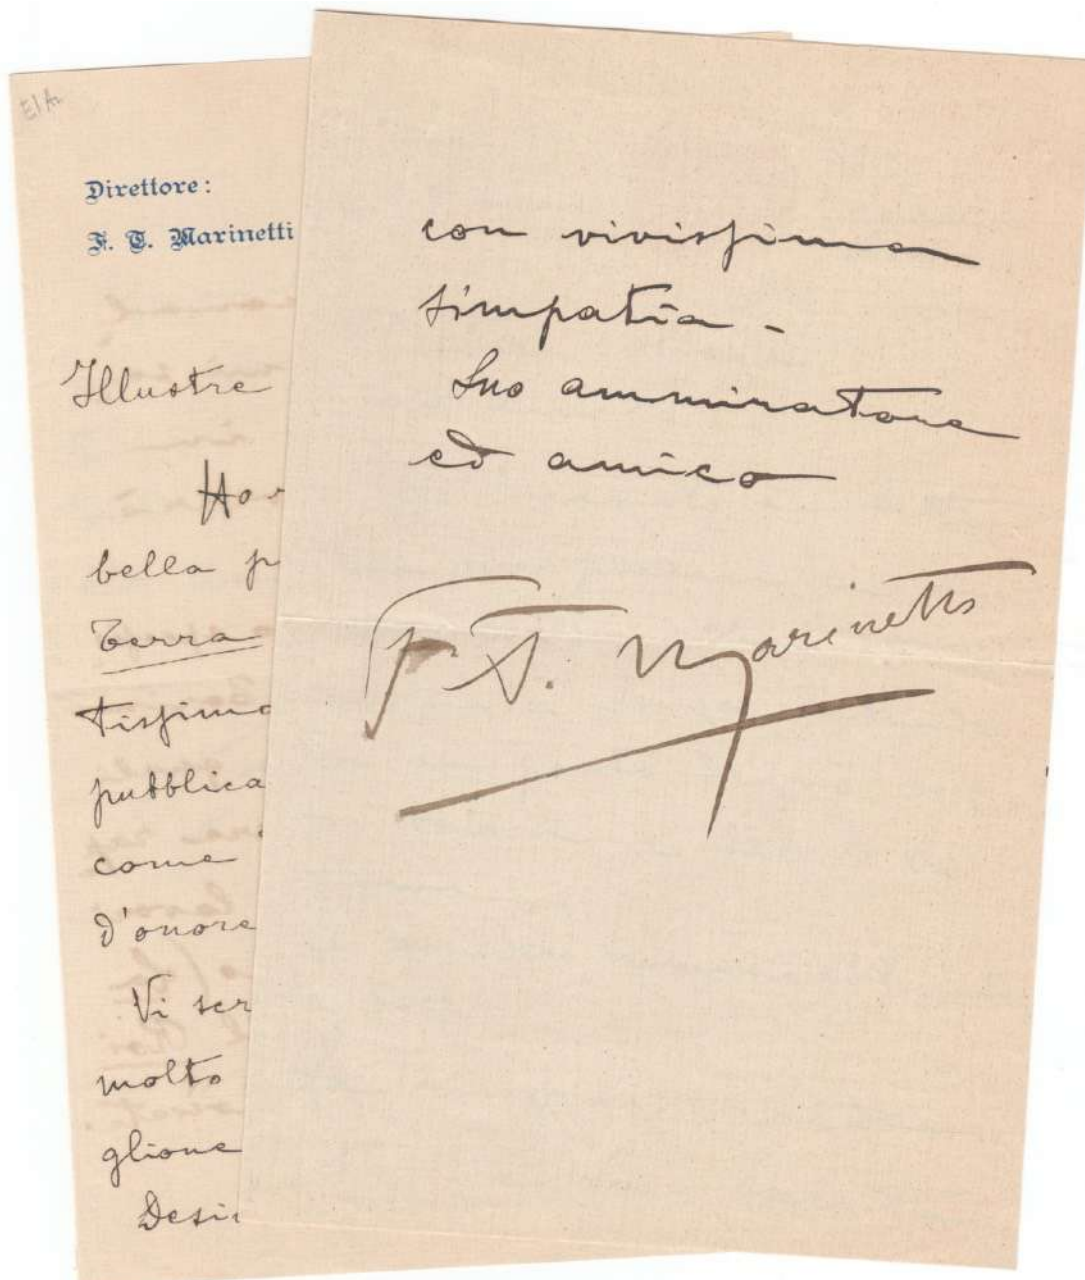 Direttore:
F. T. Marinetti
Illustre
Ho
bella
Terra
tissima
pubblica
come
d'onore
Vi scr
molto
glione
Desi
con vivissima
simpatia -
Suo ammiratore
ed amico
F. T. Marinetti